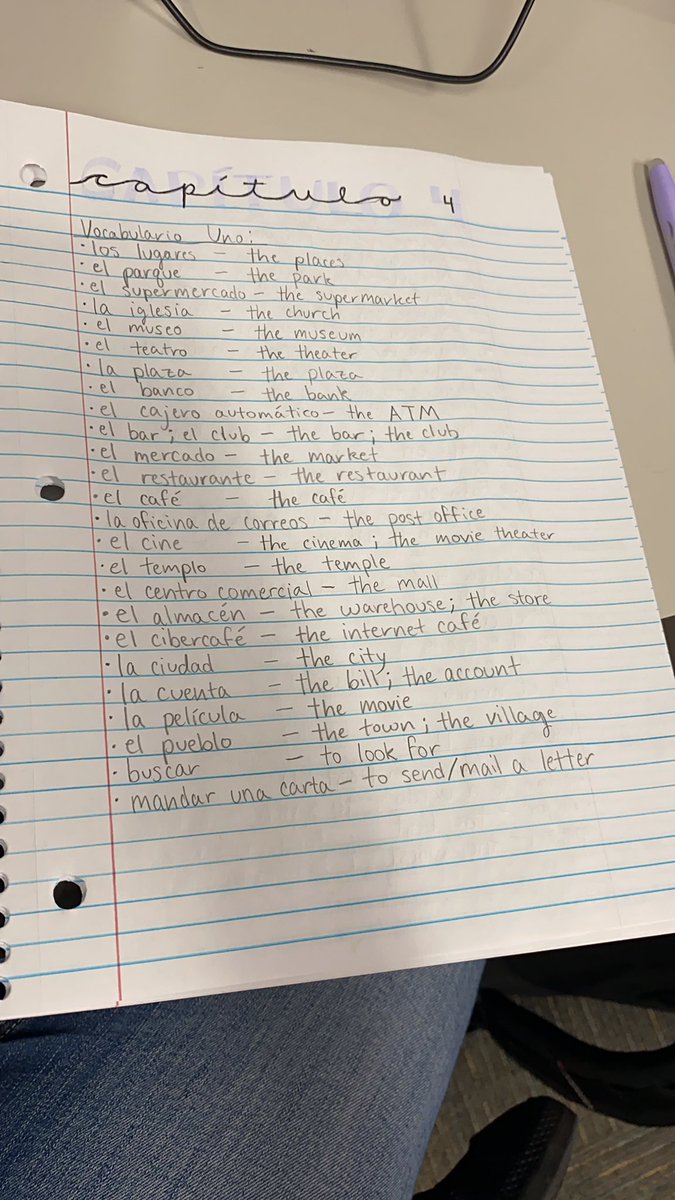 capítulo 4
Vocabulario Uno:
· los lugares – the places
· el parque – the park
· el supermercado – the supermarket
· la iglesia – the church
· el museo – the museum
· el teatro – the theater
· la plaza – the plaza
· el banco – the bank
· el cajero automático – the ATM
· el bar; el club – the bar; the club
· el mercado – the market
· el restaurante – the restaurant
· el café – the café
· la oficina de correos – the post office
· el cine – the cinema; the movie theater
· el templo – the temple
· el centro comercial – the mall
· el almacén – the warehouse; the store
· el cibercafé – the internet café
· la ciudad – the city
· la cuenta – the bill; the account
· la película – the movie
· el pueblo – the town; the village
· buscar – to look for
· mandar una carta – to send/mail a letter